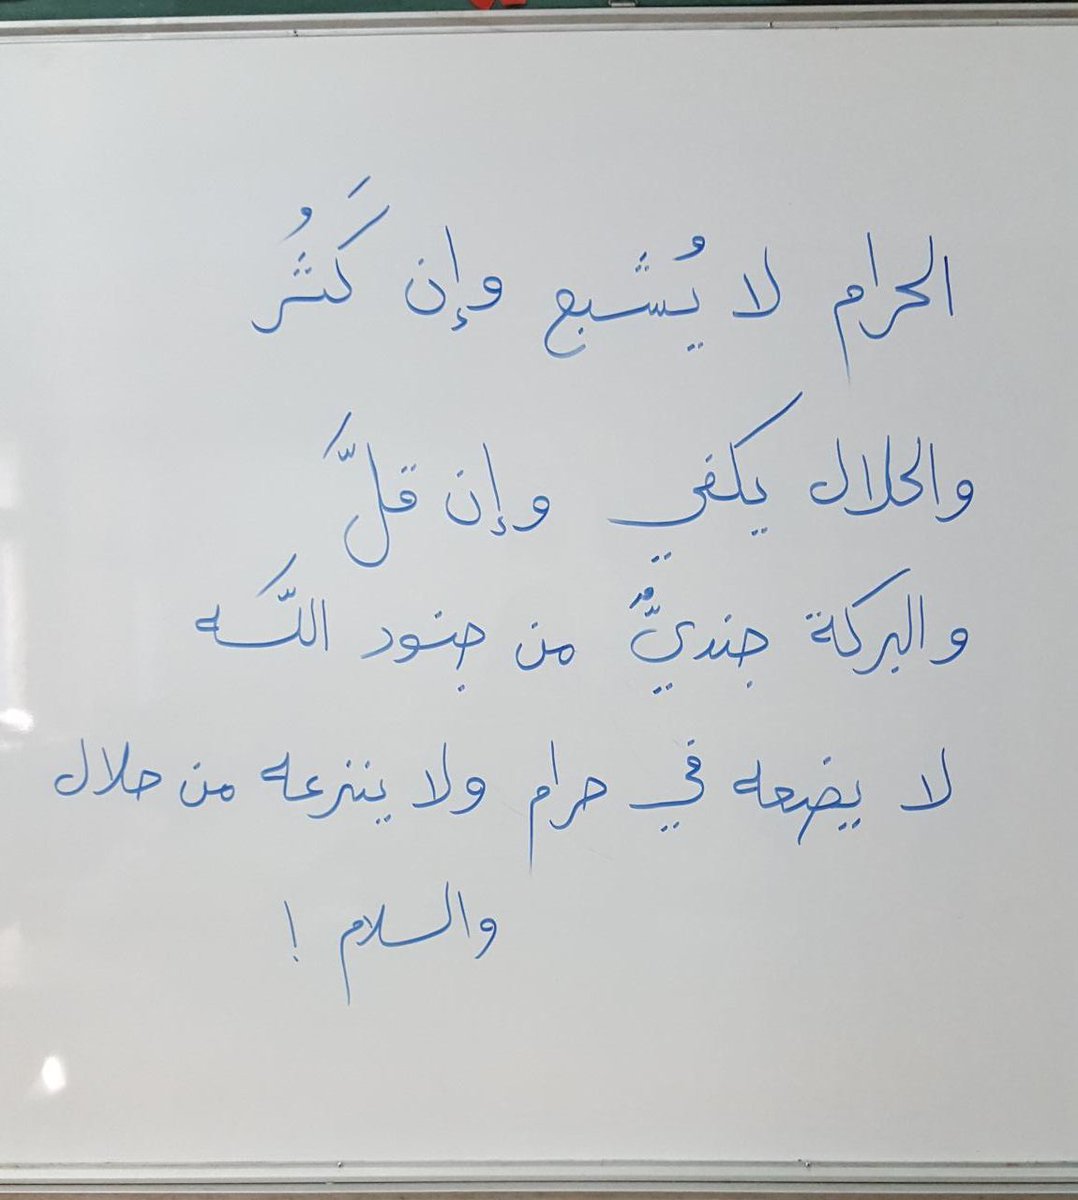 الحرام لا يُشبع وإن كَثُر
والحلال يكفي وإن قلَّ
والبركة جنديٌّ من جنود اللَّه
لا يضعه في حرام ولا ينزعه من حلال
والسلام !